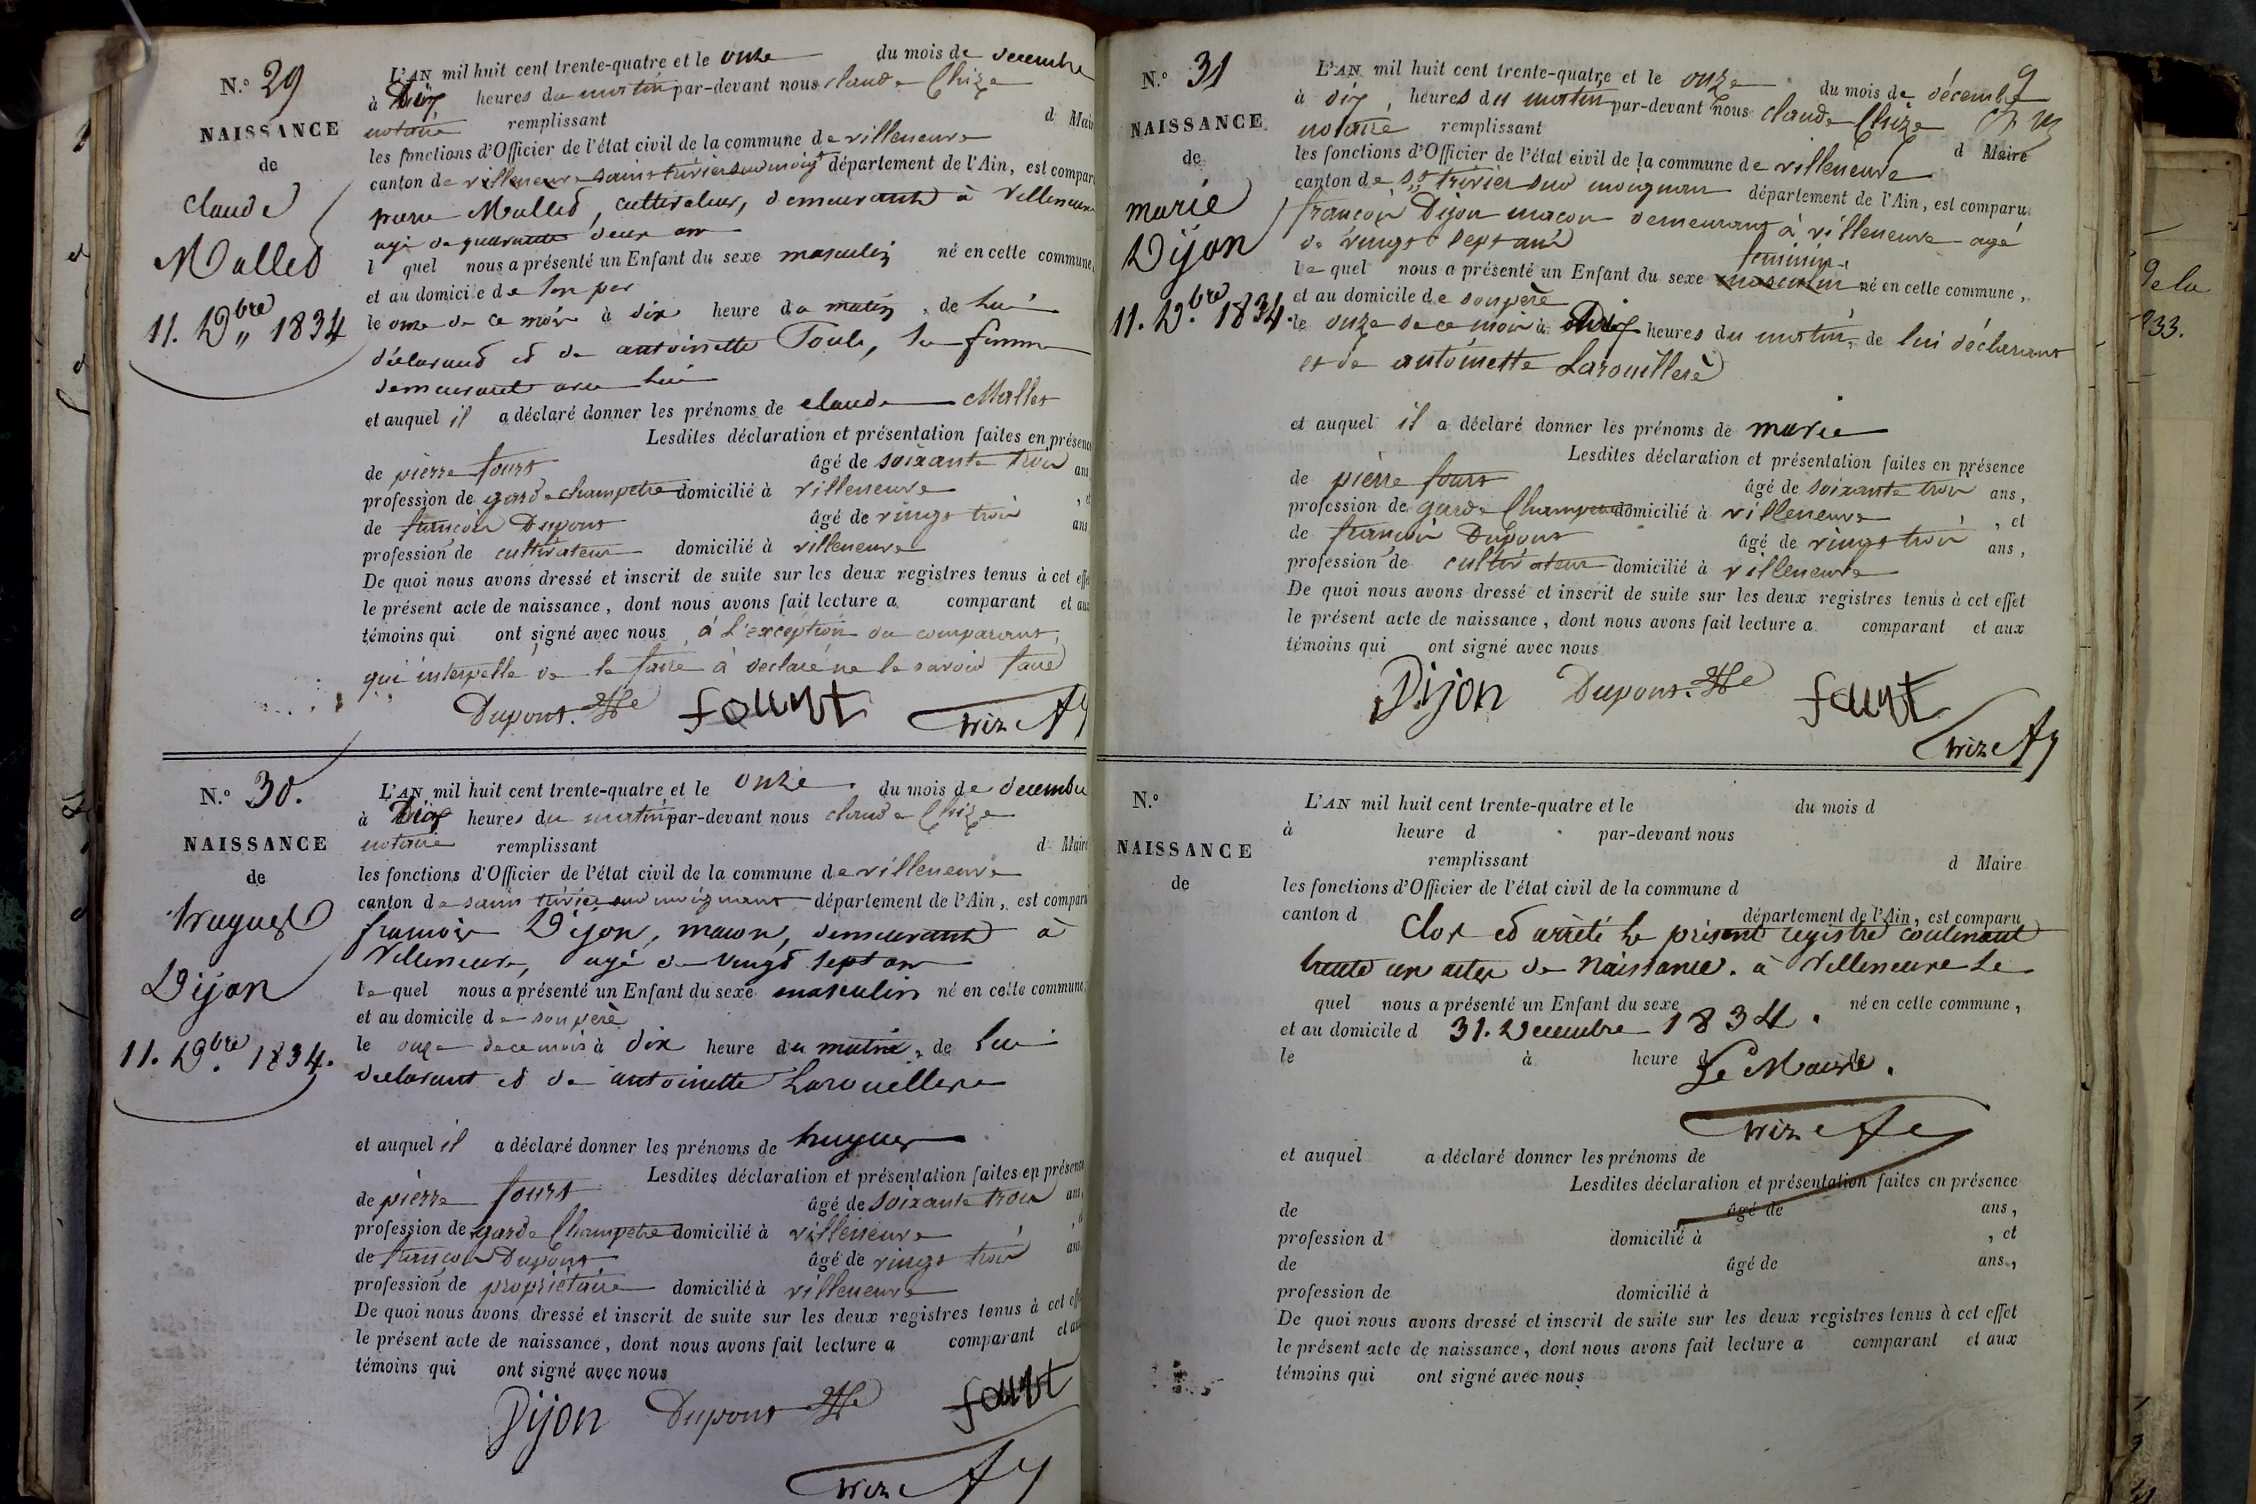 N.º 29
NAISSANCE
de
Claude
Mallet
11. Xbre 1834
L'AN mil huit cent trente-quatre et le onze du mois de decembre
à Dix heures du matin par-devant nous claude Chize
notaire remplissant d Mair
les fonctions d'Officier de l'état civil de la commune de villeneuve
canton de département de l'Ain, est compar
pierre Mallet, cultivateur, demeurant à Villeneuve
agé de quarante deux an
l quel nous a présenté un Enfant du sexe masculin né en cette commune,
et au domicile de son per
le onze de ce mois à dix heure du matin, de lui
déclarant et de antoinette sa femme
demeurant avec lui
et auquel il a déclaré donner les prénoms de claude Mallet
Lesdites déclaration et présentation faites en présence
de pierre fourt âgé de soixante trois ans
profession de garde champetre domicilié à villeneuve , et
de françois Dupont âgé de vingt trois ans
profession de cultivateur domicilié à villeneuve
De quoi nous avons dressé et inscrit de suite sur les deux registres tenus à cet effe
le présent acte de naissance, dont nous avons fait lecture a comparant et aux
témoins qui ont signé avec nous à l'exception du comparant,
qui interpellé de le faire à declaré ne le savoir faire
Dupont fourt
N.º 30.
NAISSANCE
de
hugues
Dijon
11. Xbre 1834.
L'AN mil huit cent trente-quatre et le onze du mois de decembre
à Dix heures du matin par-devant nous claude Chize
notaire remplissant d Maire
les fonctions d'Officier de l'état civil de la commune de villeneuve
canton de département de l'Ain, est comparu
francois Dijon, macon, demeurant à
Villeneuve, agé de vingt sept an
le quel nous a présenté un Enfant du sexe masculin né en cette commune,
et au domicile de son père
le onze de ce mois à dix heure du matin, de lui
déclarant et de antoinette Larouillere
et auquel il a déclaré donner les prénoms de hugues
Lesdites déclaration et présentation faites en présence
de pierre fourt âgé de soixante trois ans,
profession de garde Champetre domicilié à villeneuve
de françois Dupont âgé de vingt trois ans
profession de propriétaire domicilié à villeneuve
De quoi nous avons dressé et inscrit de suite sur les deux registres tenus à cet effe
le présent acte de naissance, dont nous avons fait lecture a comparant et aux
témoins qui ont signé avec nous
Dijon Dupont fourt
9
N.º 31
NAISSANCE
de
marie
Dijon
11. Xbre 1834.
L'AN mil huit cent trente-quatre et le onze du mois de décembre
à dix, heures du matin par-devant nous claude Chize
notaire remplissant d Maire
les fonctions d'Officier de l'état civil de la commune de villeneuve
canton de st trivier sur moignans département de l'Ain, est comparu
françois Dijon macon demeurant à villeneuve agé
de vingt sept ans
feminin
le quel nous a présenté un Enfant du sexe masculin né en cette commune,
et au domicile de son père
le onze de ce mois à Dix heures du matin, de lui déclarant
et de antoinette Larouillere
et auquel il a déclaré donner les prénoms de marie
Lesdites déclaration et présentation faites en présence
de pierre fourt âgé de soixante trois ans,
profession de garde Champetre domicilié à villeneuve , et
de françois Dupont âgé de vingt trois ans,
profession de cultivateur domicilié à villeneuve
De quoi nous avons dressé et inscrit de suite sur les deux registres tenus à cet effet
le présent acte de naissance, dont nous avons fait lecture a comparant et aux
témoins qui ont signé avec nous
Dijon Dupont fourt
N.º
NAISSANCE
de
L'AN mil huit cent trente-quatre et le du mois d
à heure d par-devant nous
remplissant d Maire
les fonctions d'Officier de l'état civil de la commune d
canton d département de l'Ain, est comparu
Clos et arrêté le présent registre contenant
trente un actes de Naissance. à Villeneuve Le
quel nous a présenté un Enfant du sexe né en cette commune,
et au domicile d 31. Decembre 1834.
le à heure d de
Le Maire.
et auquel a déclaré donner les prénoms de
Lesdites déclaration et présentation faites en présence
de âgé de ans,
profession d domicilié à , et
de âgé de ans,
profession de domicilié à
De quoi nous avons dressé et inscrit de suite sur les deux registres tenus à cet effet
le présent acte de naissance, dont nous avons fait lecture a comparant et aux
témoins qui ont signé avec nous
de la
833.